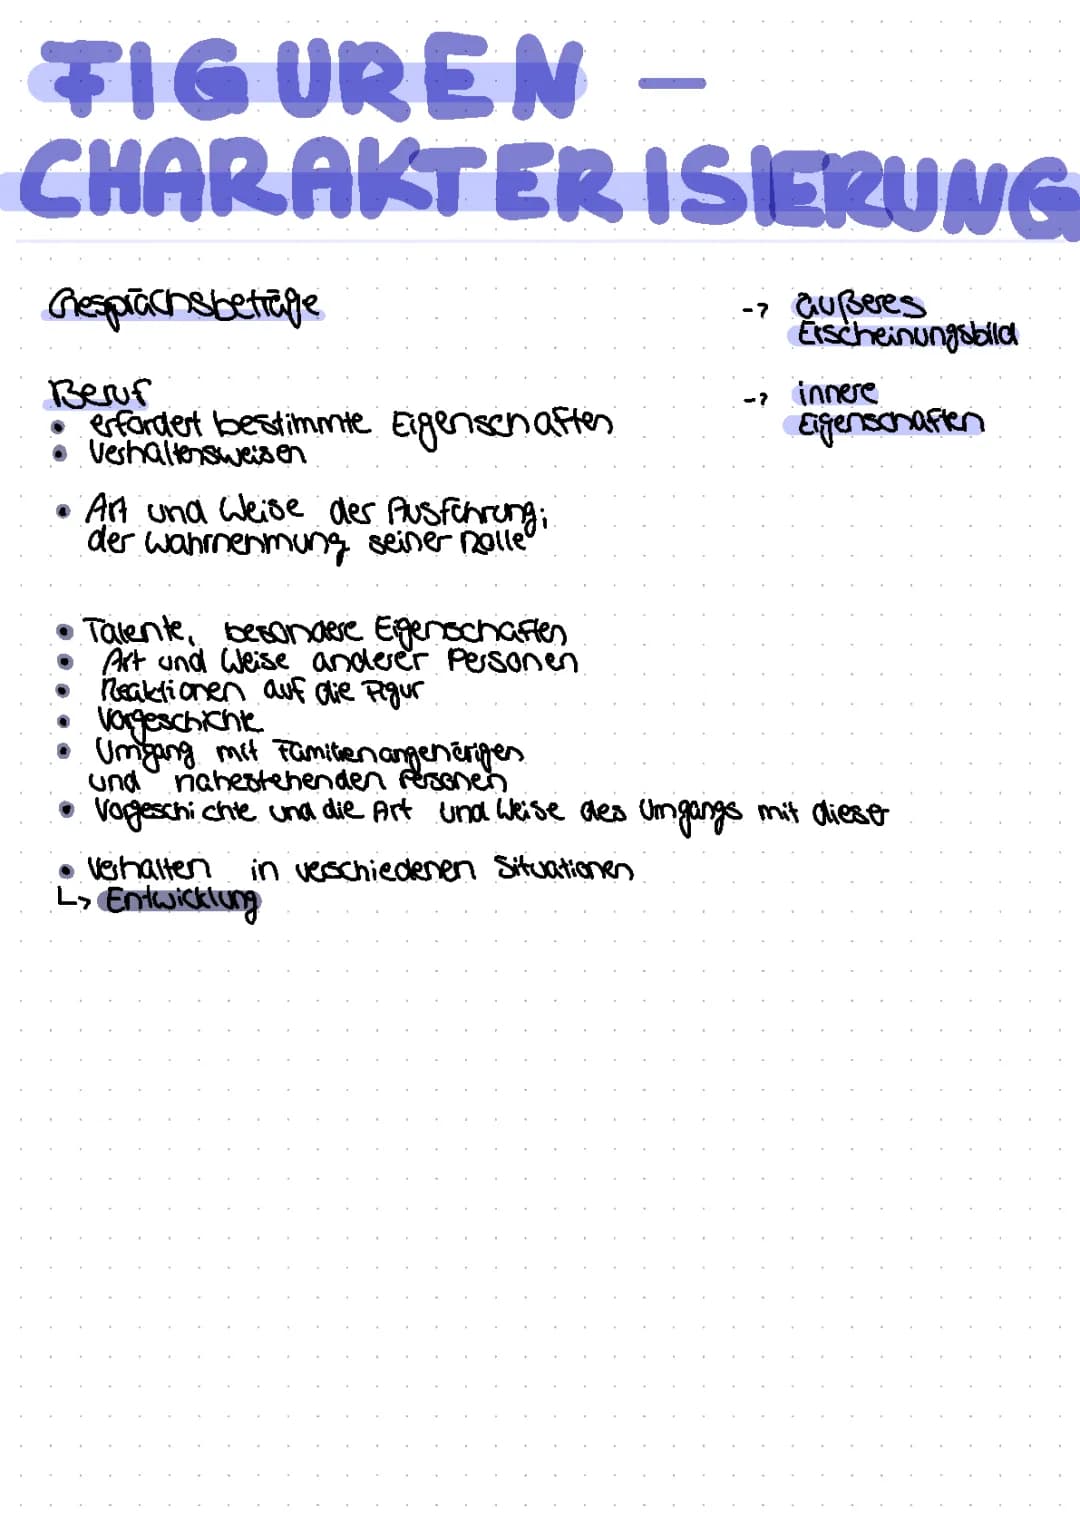 FIGUREN -
CHARAKTERISIERUNG
Gesprächsbeträge
-> äußeres
Erscheinungsbild
Beruf
• erfordert bestimmte Eigenschaften
• Verhaltensweisen
-> innere
Eigenschaften
• Art und Weise der Ausführung;
der Wahrnehmung seiner Rolle
• Talente, besondere Eigenschaften
• Art und Weise anderer Personen
• Reaktionen auf die Figur
• Vorgeschichte
• Umgang mit Familienangehörigen
und nahestehenden Personen
• Vogeschichte und die Art und Weise des Umgangs mit dieser
• Verhalten in verschiedenen Situationen
↳ Entwicklung